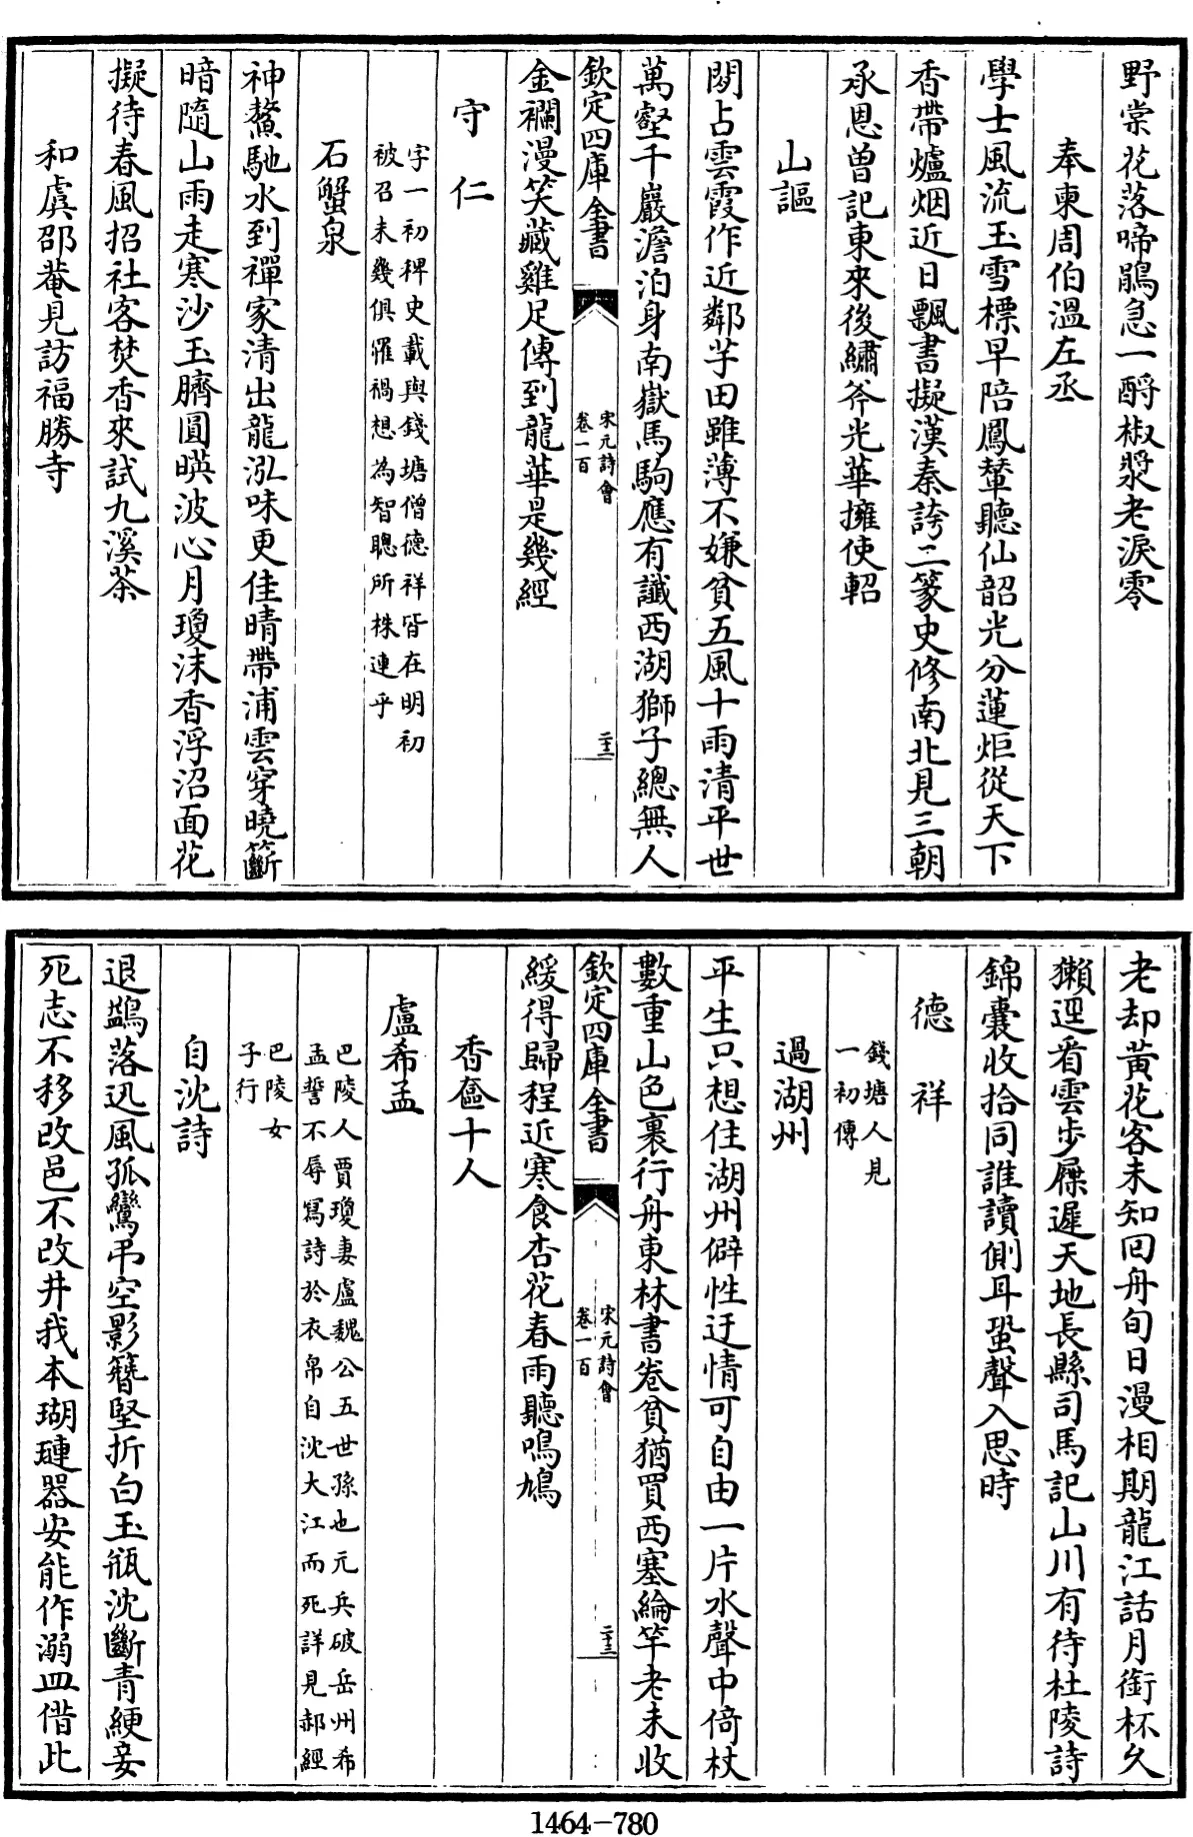 野棠花落啼鵑急一酹椒漿老淚零
奉柬周伯溫左丞
學士風流玉雪標早陪鳳輦聽仙韶光分蓮炬從天下
香帶爐烟近日飄書擬漢秦誇二篆史修南北見三朝
承恩曽記東來後繡斧光華擁使軺
山謳
閱占雲霞作近鄰芋田雖薄不嫌貧五風十雨清平世
萬壑千巖澹泊身南嶽馬駒應有讖西湖獅子總無人
欽定四庫全書
宋元詩會
卷一百
二十二
金襴漫笑藏雞足傳到龍華是幾經
守仁
字一初稗史載與錢塘僧德祥皆在明初
被召未幾俱罹禍想為智聰所株連乎
石蟹泉
神鰲馳水到禪家清出龍泓味更佳晴帶浦雲穿曉斸
暗隨山雨走寒沙玉臍圓暎波心月瓊沫香浮沼面花
擬待春風招社客焚香來試九溪茶
和虞邵菴見訪福勝寺
老却黃花客未知囘舟旬日漫相期龍江話月銜杯久
獺逕看雲步屧遲天地長縣司馬記山川有待杜陵詩
錦囊收拾同誰讀側耳蛩聲入思時
德祥
錢塘人見
一初傳
過湖州
平生只想住湖州僻性迂情可自由一片水聲中倚杖
數重山色裏行舟東林書卷貧猶買西塞綸竿老未收
欽定四庫全書
宋元詩會
卷一百
二十三
緩得歸程近寒食杏花春雨聽鳴鳩
香奩十人
盧希孟
巴陵人賈瓊妻盧魏公五世孫也元兵破岳州希
孟誓不辱寫詩於衣帛自沈大江而死詳見郝經
巴陵女
子行
自沈詩
退鷁落迅風孤鸞弔空影簪堅折白玉瓶沈斷青綆妾
死志不移改邑不改井我本瑚璉器安能作溺皿借此
1464-780